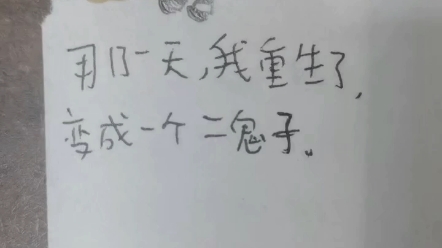 用了一天，我重生了，
变成一个二鬼子。